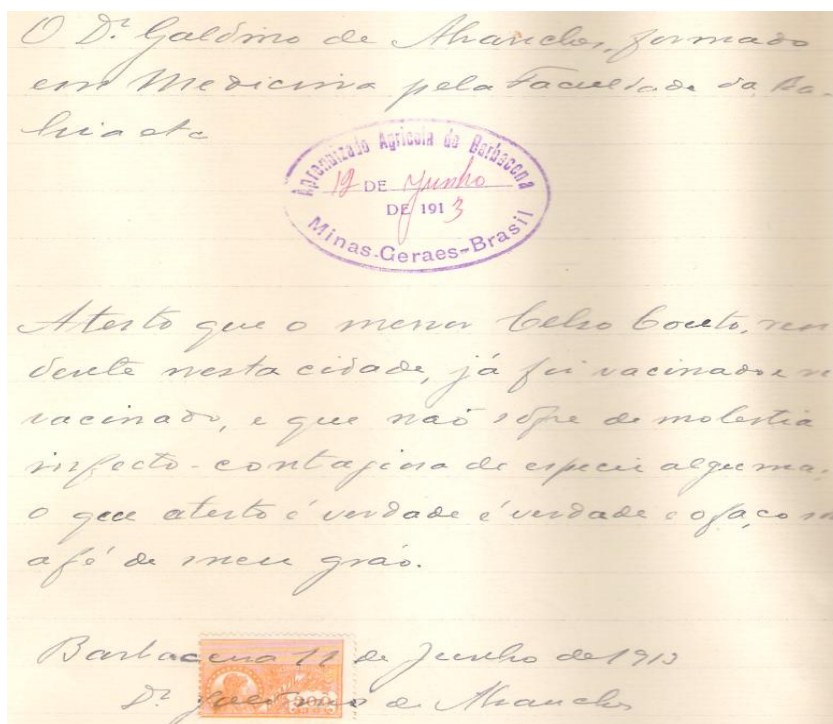 O Dr. Galdino de Abranches, formado
em Medicina pela Faculdade da Ba-
hia etc
Aprendizado Agricola de Barbacena
12 DE Junho
DE 1913
Minas-Geraes-Brasil
Atesto que o menor Celso Couto, resi
dente nesta cidade, já foi vacinado e re
vacinado, e que não sofre de molestia
infecto-contagiosa de especie alguma;
o que atesto é verdade é verdade e o faço
a fé de meu gráo.
Barbacena 11 de Junho de 1913
Dr. Galdino de Abranches